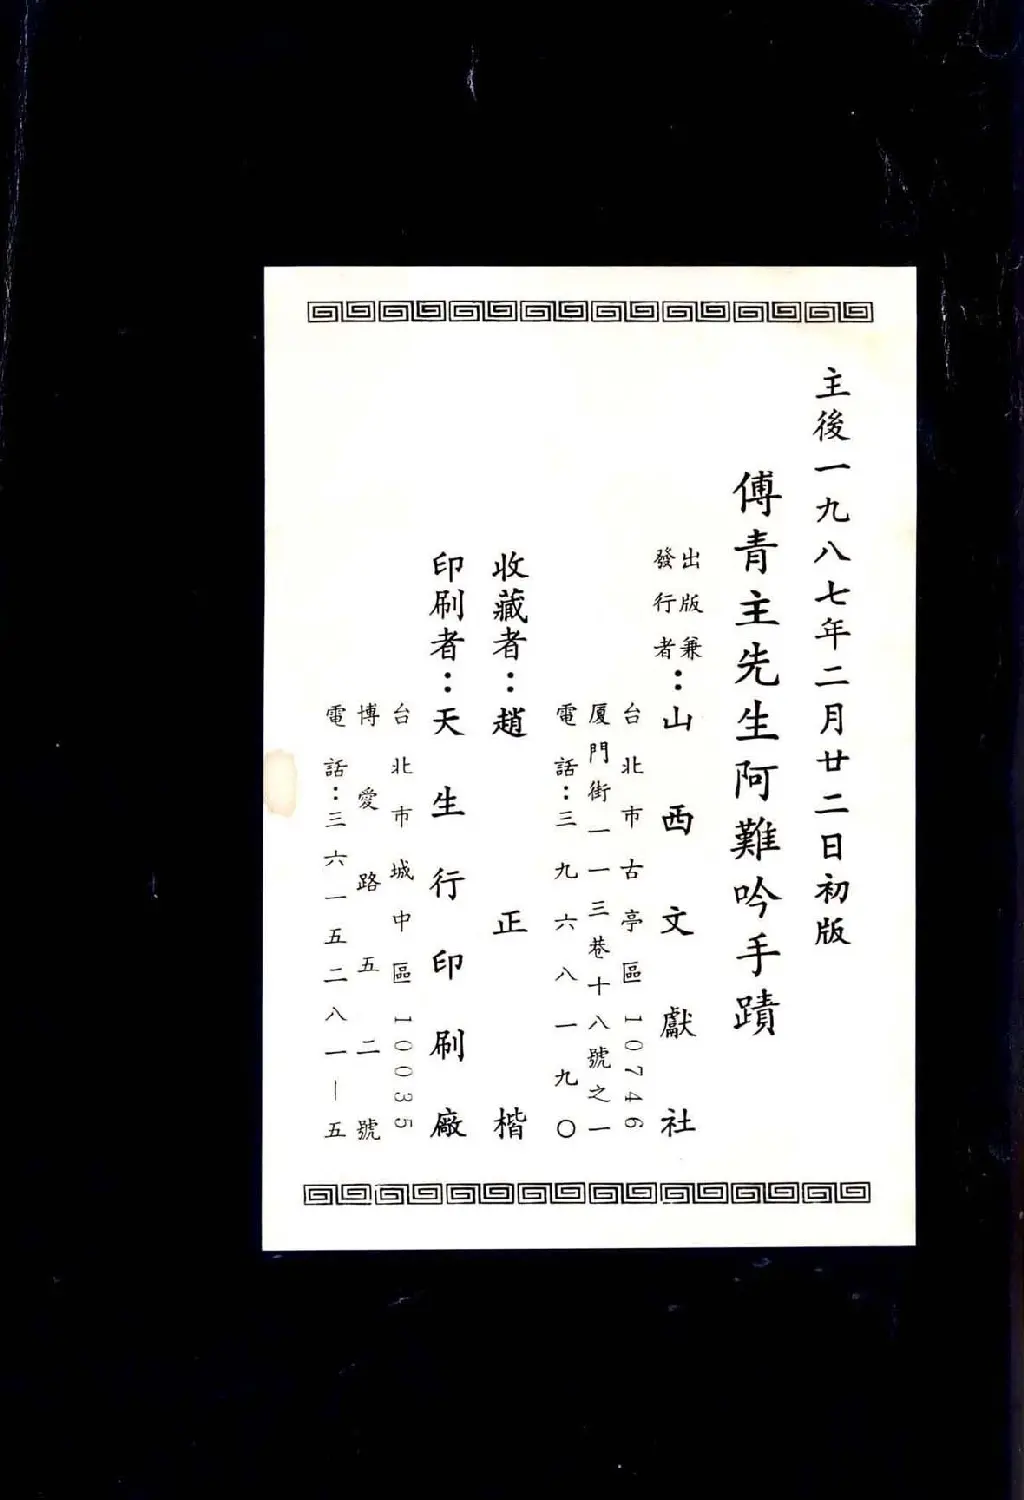 主後一九八七年二月廿二日初版
傅青主先生阿難吟手蹟
出版兼
發行者：山西文獻社
台北市古亭區10746
厦門街一一三巷十八號之一
電話：三九六八一九〇
收藏者：趙正楷
印刷者：天生行印刷廠
台北市城中區10035
博愛路五二號
電話：三六一五二八一—五